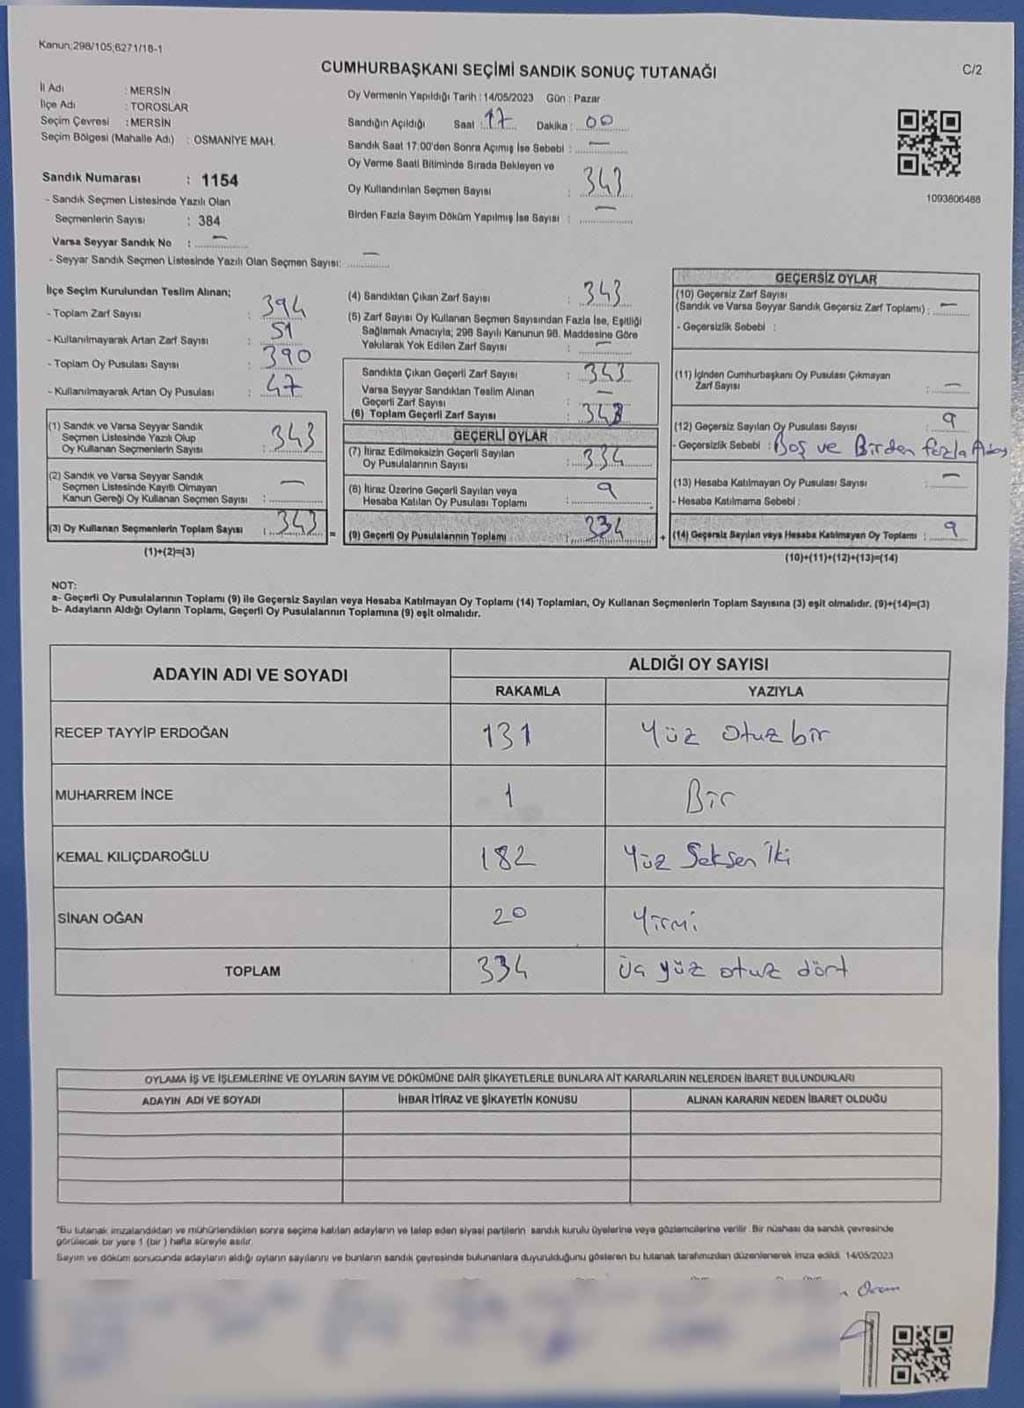 Kanun;298/105;6271/18-1
CUMHURBAŞKANI SEÇİMİ SANDIK SONUÇ TUTANAĞI
C/2
İl Adı : MERSİN
İlçe Adı : TOROSLAR
Seçim Çevresi : MERSİN
Seçim Bölgesi (Mahalle Adı) : OSMANİYE MAH.
Sandık Numarası : 1154
- Sandık Seçmen Listesinde Yazılı Olan
Seçmenlerin Sayısı : 384
Varsa Seyyar Sandık No : —
- Seyyar Sandık Seçmen Listesinde Yazılı Olan Seçmen Sayısı: —
Oy Vermenin Yapıldığı Tarih : 14/05/2023 Gün : Pazar
Sandığın Açıldığı Saat : 17 Dakika : 00
Sandık Saat 17:00'den Sonra Açımış İse Sebebi : —
Oy Verme Saati Bitiminde Sırada Bekleyen ve
Oy Kullandırılan Seçmen Sayısı : 343
Birden Fazla Sayım Döküm Yapılmış İse Sayısı : —
1093606486
İlçe Seçim Kurulundan Teslim Alınan;
- Toplam Zarf Sayısı : 394
- Kullanılmayarak Artan Zarf Sayısı : 51
- Toplam Oy Pusulası Sayısı : 390
- Kullanılmayarak Artan Oy Pusulası : 47
(1) Sandık ve Varsa Seyyar Sandık
Seçmen Listesinde Yazılı Olup
Oy Kullanan Seçmenlerin Sayısı : 343
(2) Sandık ve Varsa Seyyar Sandık
Seçmen Listesinde Kayıtlı Olmayan
Kanun Gereği Oy Kullanan Seçmen Sayısı : —
(3) Oy Kullanan Seçmenlerin Toplam Sayısı : 343 =
(1)+(2)=(3)
(4) Sandıktan Çıkan Zarf Sayısı : 343
(5) Zarf Sayısı Oy Kullanan Seçmen Sayısından Fazla İse, Eşitliği
Sağlamak Amacıyla; 298 Sayılı Kanunun 98. Maddesine Göre
Yakılarak Yok Edilen Zarf Sayısı : —
Sandıkta Çıkan Geçerli Zarf Sayısı : 343
Varsa Seyyar Sandıktan Teslim Alınan
Geçerli Zarf Sayısı : —
(6) Toplam Geçerli Zarf Sayısı : 343
GEÇERLİ OYLAR
(7) İtiraz Edilmeksizin Geçerli Sayılan
Oy Pusulalarının Sayısı : 334
(8) İtiraz Üzerine Geçerli Sayılan veya
Hesaba Katılan Oy Pusulası Toplamı : 9
(9) Geçerli Oy Pusulalarının Toplamı : 334 +
GEÇERSİZ OYLAR
(10) Geçersiz Zarf Sayısı
(Sandık ve Varsa Seyyar Sandık Geçersiz Zarf Toplamı) : —
- Geçersizlik Sebebi :
(11) İçinden Cumhurbaşkanı Oy Pusulası Çıkmayan
Zarf Sayısı : —
(12) Geçersiz Sayılan Oy Pusulası Sayısı : 9
- Geçersizlik Sebebi : Boş ve Birden fazla Aday
(13) Hesaba Katılmayan Oy Pusulası Sayısı : —
- Hesaba Katılmama Sebebi :
(14) Geçersiz Sayılan veya Hesaba Katılmayan Oy Toplamı : 9
(10)+(11)+(12)+(13)=(14)
NOT:
a- Geçerli Oy Pusulalarının Toplamı (9) ile Geçersiz Sayılan veya Hesaba Katılmayan Oy Toplamı (14) Toplamları, Oy Kullanan Seçmenlerin Toplam Sayısına (3) eşit olmalıdır. (9)+(14)=(3)
b- Adayların Aldığı Oyların Toplamı, Geçerli Oy Pusulalarının Toplamına (9) eşit olmalıdır.
ADAYIN ADI VE SOYADI
ALDIĞI OY SAYISI
RAKAMLA YAZIYLA
RECEP TAYYİP ERDOĞAN 131 Yüz otuz bir
MUHARREM İNCE 1 Bir
KEMAL KILIÇDAROĞLU 182 Yüz Seksen İki
SİNAN OĞAN 20 Yirmi
TOPLAM 334 Üç yüz otuz dört
OYLAMA İŞ VE İŞLEMLERİNE VE OYLARIN SAYIM VE DÖKÜMÜNE DAİR ŞİKAYETLERLE BUNLARA AİT KARARLARIN NELERDEN İBARET BULUNDUKLARI
ADAYIN ADI VE SOYADI İHBAR İTİRAZ VE ŞİKAYETİN KONUSU ALINAN KARARIN NEDEN İBARET OLDUĞU
"Bu tutanak imzalandıktan ve mühürlendikten sonra seçime katılan adayların ve talep eden siyasi partilerin sandık kurulu üyelerine veya gözlemcilerine verilir. Bir nüshası da sandık çevresinde
görülecek bir yere 1 (bir) hafta süreyle asılır.
Sayım ve döküm sonucunda adayların aldığı oyların sayılarını ve bunların sandık çevresinde bulunanlara duyurulduğunu gösteren bu tutanak tarafımızdan düzenlenerek imza edildi. 14/05/2023